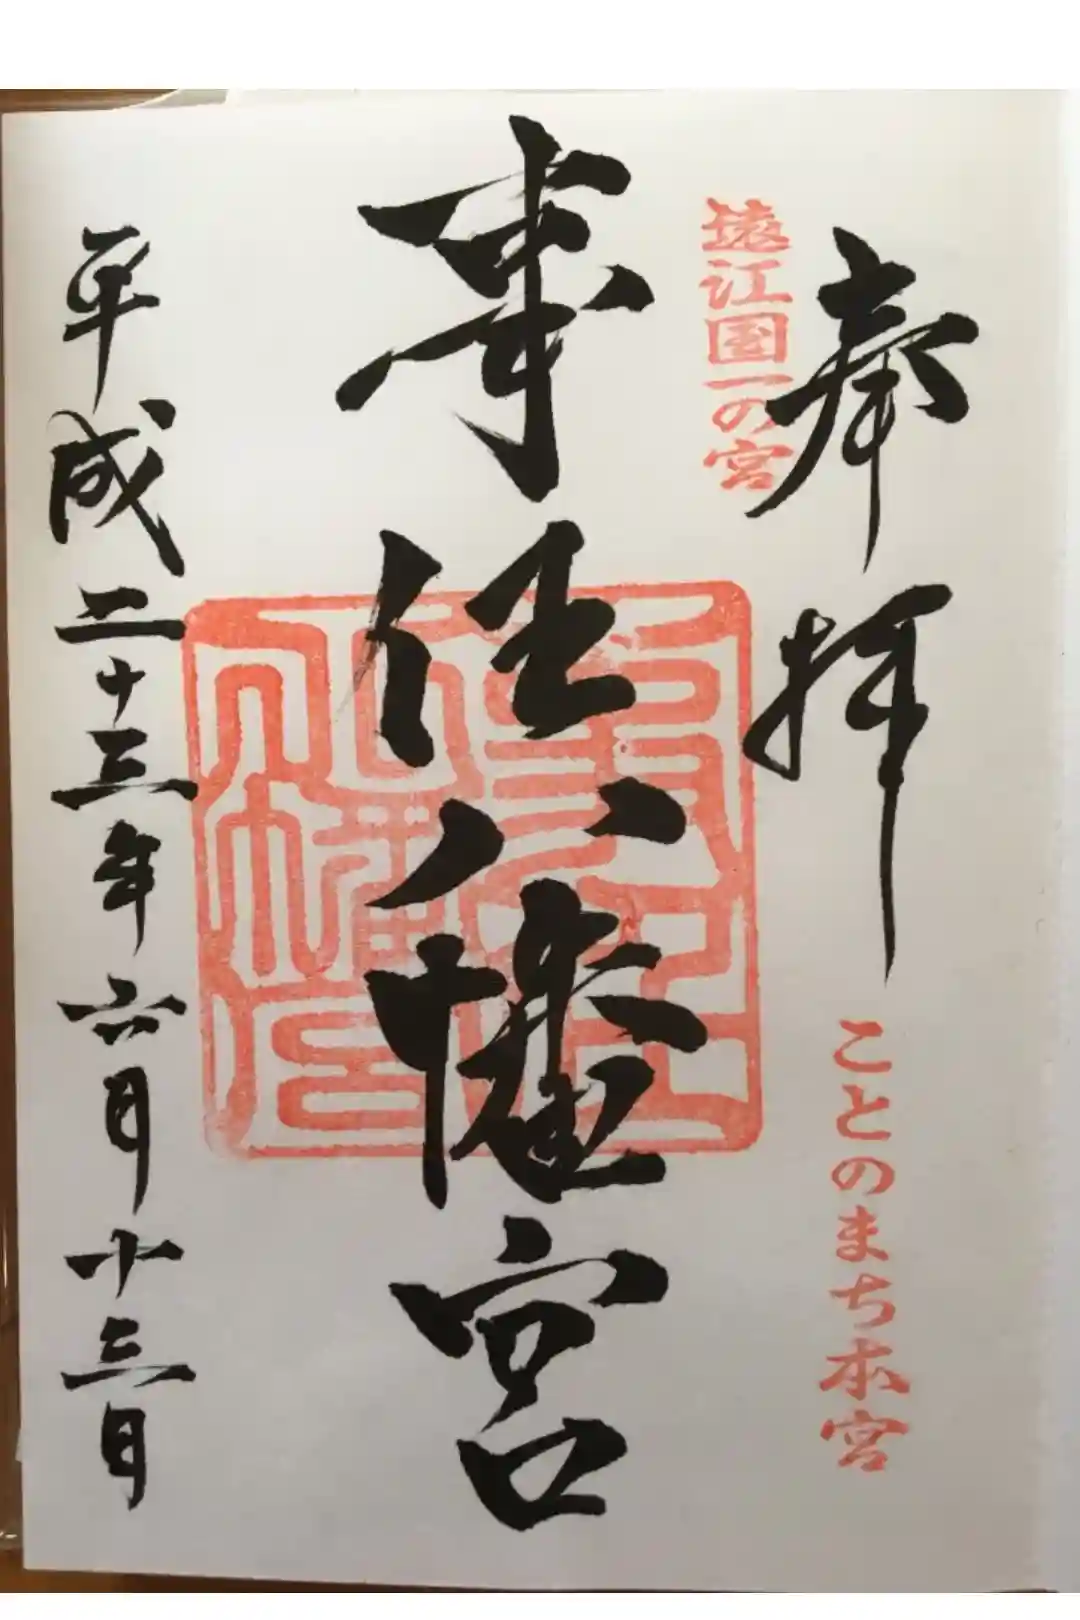 奉拝
遠江国一の宮
ことのまち本宮
事任八幡宮
平成二十三年六月十三日